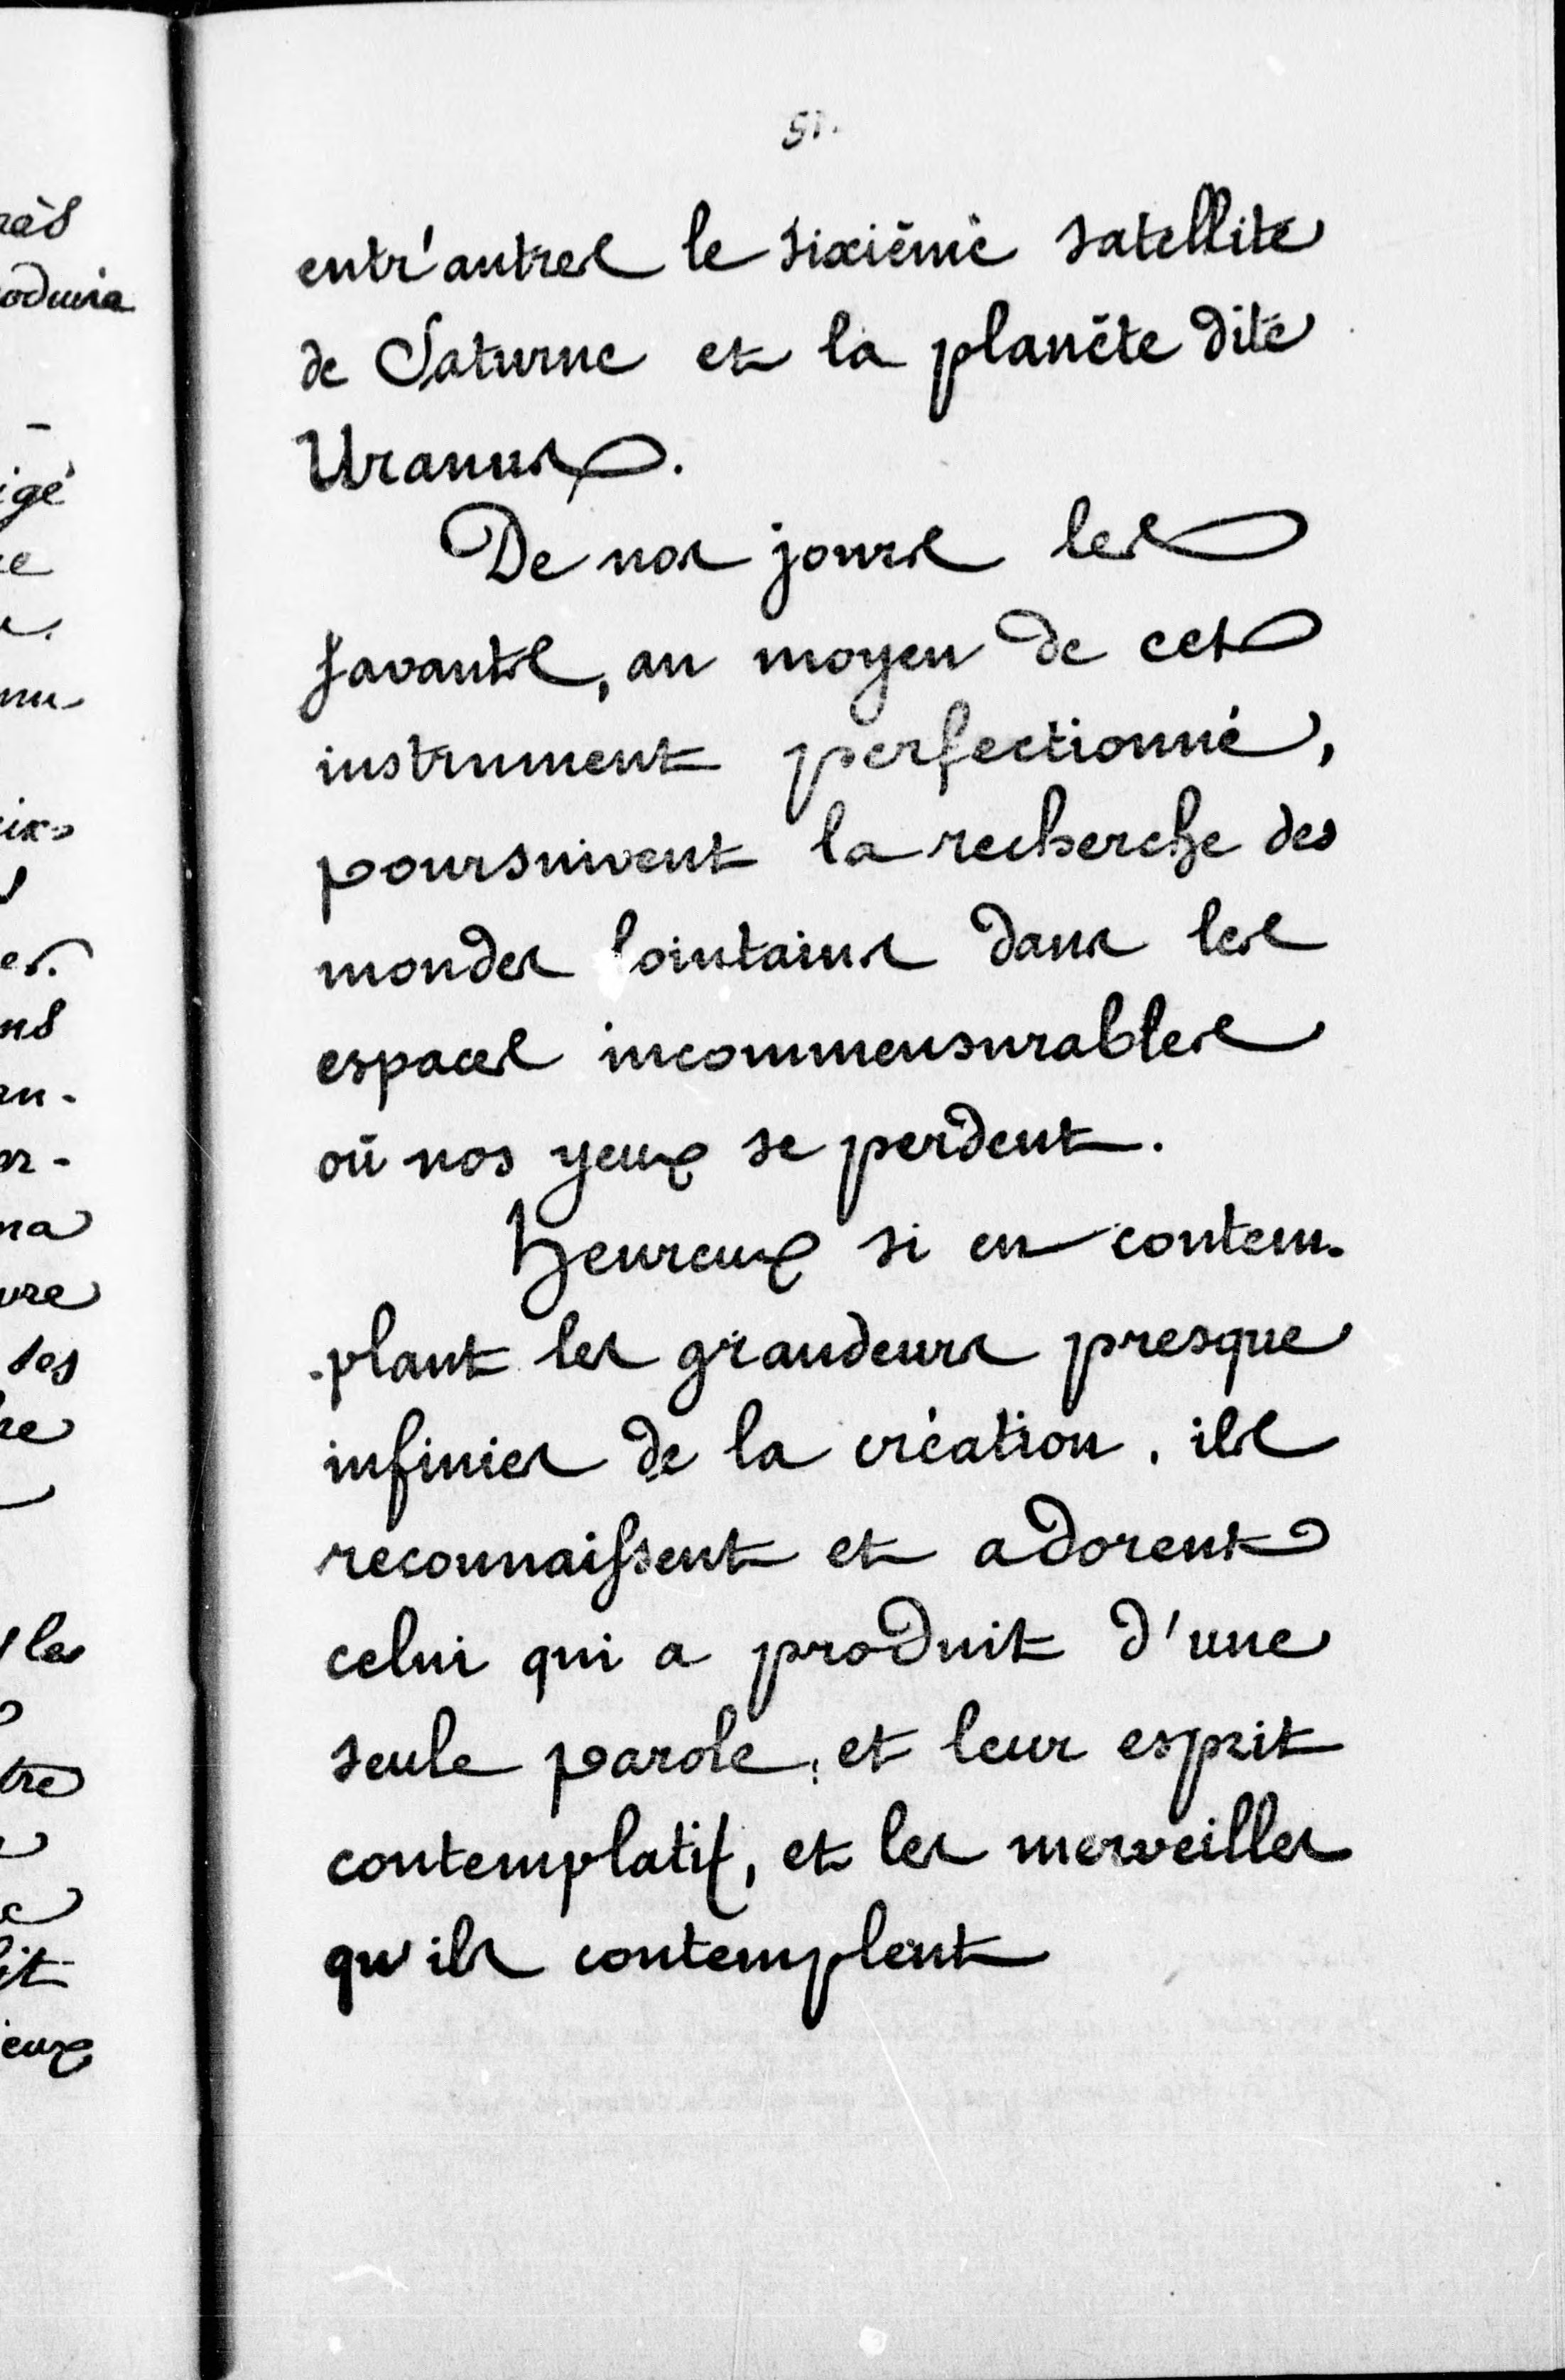 51.
entr'autres le sixième satellite
de Saturne et la planète dite
Uranus.
De nos jours les
savants, au moyen de cet
instrument perfectionné,
poursuivent la recherche des
mondes lointains dans les
espaces incommensurables
où nos yeux se perdent.
Heureux si en contem-
-plant les grandeurs presque
infinies de la création, ils
reconnaissent et adorent
celui qui a produit d'une
seule parole, et leur esprit
contemplatif, et les merveilles
qu'ils contemplent